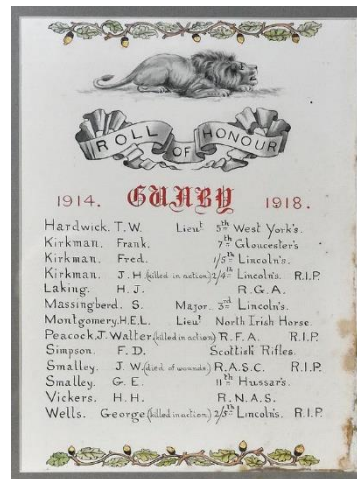 ROLL OF HONOUR
1914. GUNBY 1918.
Hardwick. T.W. Lieut 5th West York's.
Kirkman. Frank. 7th Gloucester's
Kirkman. Fred. 1/5th Lincoln's.
Kirkman. J.H. (killed in action) 2/4th Lincoln's. R.I.P.
Laking. H.J. R.G.A.
Massingberd. S. Major. 3rd Lincoln's.
Montgomery. H.E.L. Lieut North Irish Horse.
Peacock. J. Walter (killed in action) R.F.A. R.I.P.
Simpson. F.D. Scottish Rifles.
Smalley. J.W. (died of wounds) R.A.S.C. R.I.P.
Smalley. G.E. 11th Hussar's.
Vickers. H.H. R.N.A.S.
Wells. George (killed in action) 2/5th Lincoln's. R.I.P.